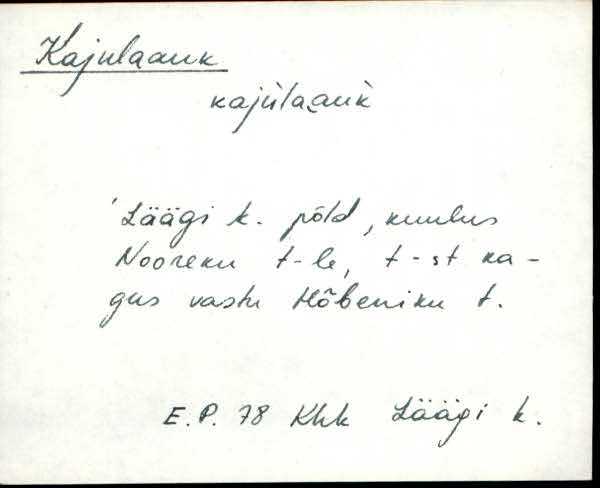 Kajulaauk
kajùla͜auk̀
Läägi k. põld, kuulus
Nooreku t-le, t-st ka-
gus vastu Hõbeniku t.
E.P. 78 Khk Läägi k.